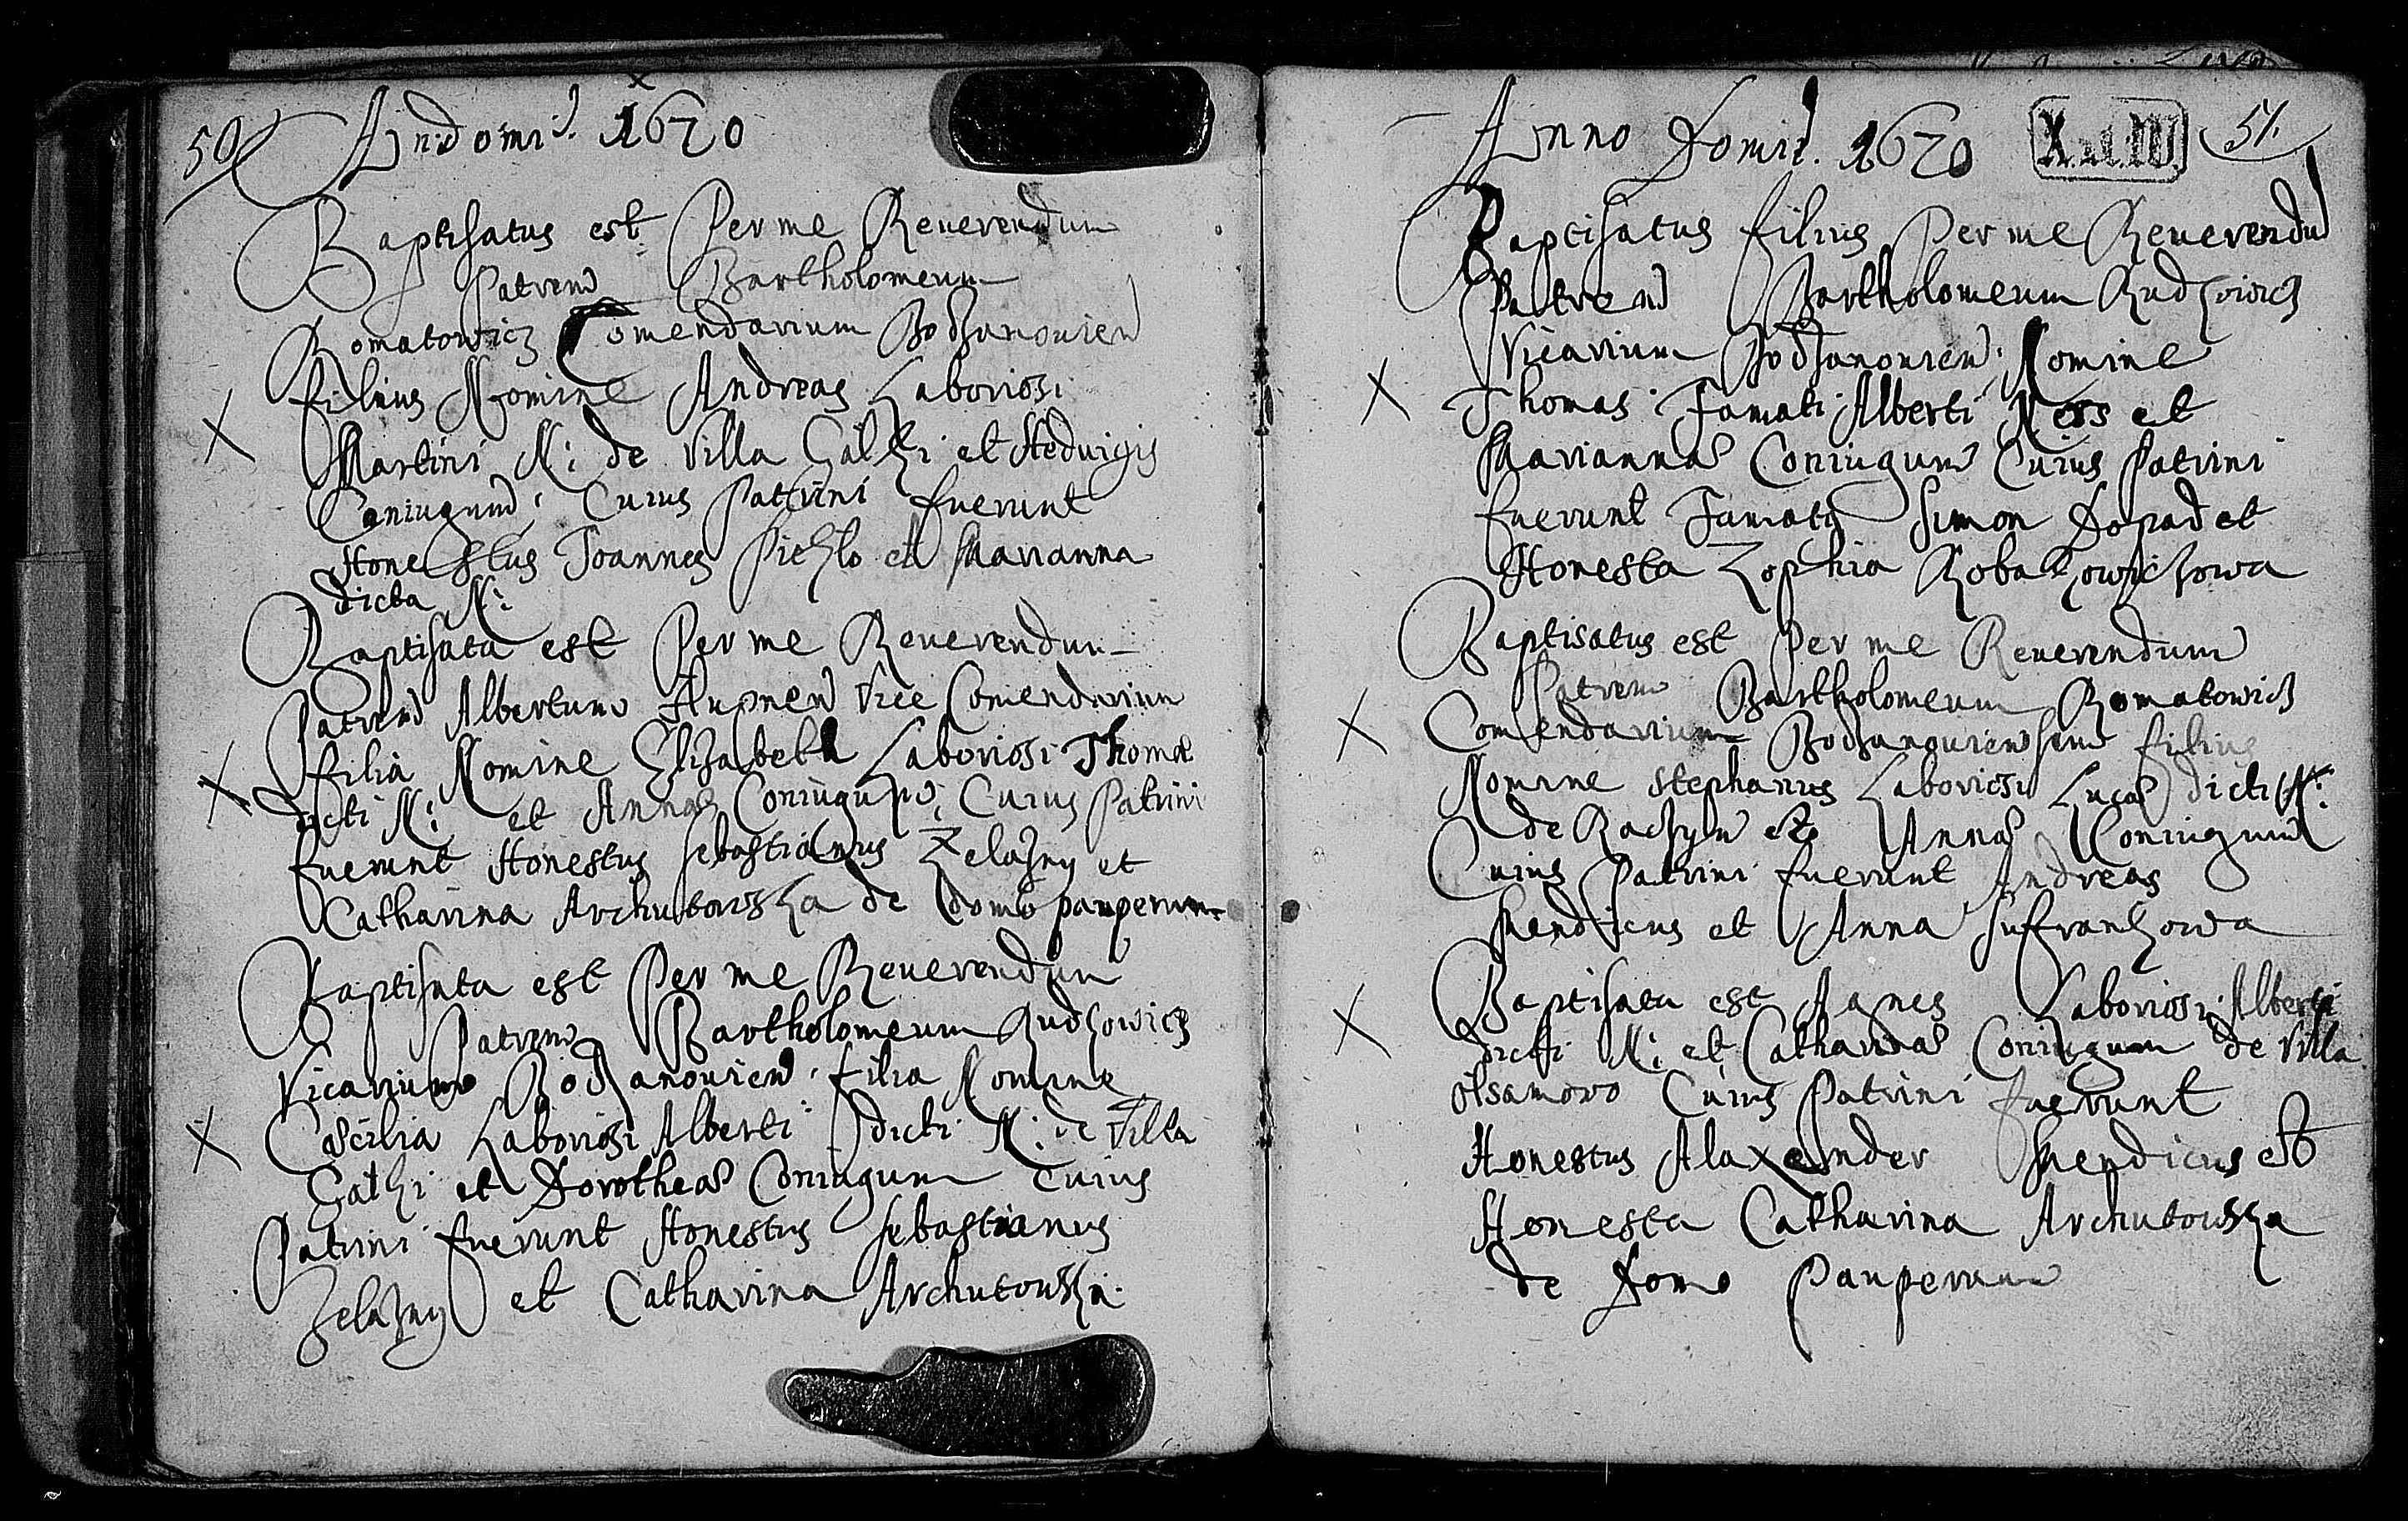 50
An: domi: 1670
Baptisatus est Per me Reuerendum
Patrem Bartholomeum
Romatowicz Comendarium Bodzanouien
filius Nomine Andreas Laboriosi
Martini N: de Villa Gałki et Heduigis
Coniugum: Cuius Patrini fuerunt
Honestus Joannes Piekło et Marianna
dicta N:
Baptisata est Per me Reuerendum
Patrem Albertum Vice Comendarium
filia Nomine Elisabeth Laboriosi Thomæ
dicti N: et Annæ Coniugum, Cuius Patrini
fuerunt Honestus Sebastianus Zelazny et
Catharina Archutowska de domo pauperum
Baptisata est Per me Reuerendum
Patrem Bartholomeum Rudzowicz
Vicarium Bodzanouien: filia Nomine
Cæcilia Laboriosi Alberti dicti N: de Villa
Gałki et Dorotheæ Coniugum Cuius
Patrini fuerunt Honestus Sebastianus
Zelazny et Catharina Archutowska
Anno Domi: 1670
51.
Baptisatus filius Per me Reuerendu
Patrem Bartholomeum Rudzowicz
Vicarium Bodzanouien: Nomine
Thomas Famati Alberti Kess et
Mariannæ Coniugum Cuius Patrini
fuerunt Famatus Simon Dopad et
Honesta Zophia
Baptisatus est Per me Reuerendum
Patrem Bartholomeum Romatowicz
Comendarium Bodzanouiensem filius
Nomine Stephanus Laboriosi Lucæ dicti N:
de et Annæ Coniugum
Cuius Patrini fuerunt Andreas
Mendicus et Anna
Baptisata est Agnes Laboriosi Alberti
dicti N: et Catharinæ Coniugum de Villa
Cuius Patrini fuerunt
Honestus Alaxender Mendicus et
Honesta Catharina Archutowska
de Domo Pauperum